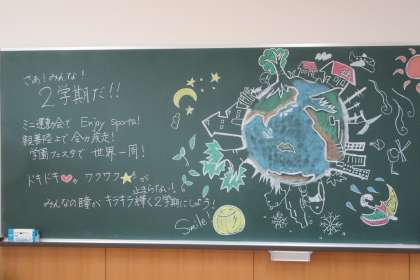 さぁ！みんな！
2学期だ!!
ミニ運動会で Enjoy Sports!
親善陸上で 全力疾走！
学園フェスタで 世界一周！
ドキドキ ワクワク が
止まらない！
みんなの瞳が キラキラ輝く2学期にしよう！
Smile!